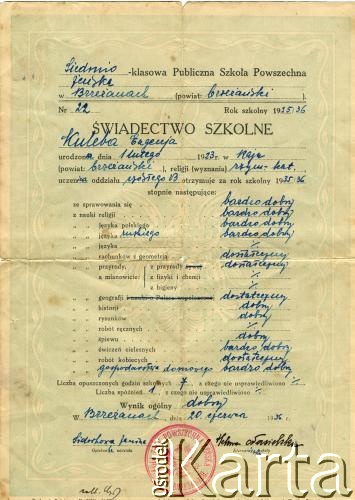 Siedmio -klasowa Publiczna Szkoła Powszechna
żeńska
w Brzeżanach (powiat: brzeżański ).
Nr 22 Rok szkolny 1935/36
ŚWIADECTWO SZKOLNE
Kuleba Eugenja
urodzona dnia 1 lutego 1923 r. w
(powiat: brzeżański ), religii (wyznania) rzym. kat.
uczenica oddziału szóstego B otrzymuje za rok szkolny 1935/36
stopnie następujące:
ze sprawowania się bardzo dobry
z nauki religii bardzo dobry
„ „ języka polskiego bardzo dobry
„ „ języka ruskiego bardzo dobry
„ „ języka
„ „ rachunków z geometrią dostateczny
„ „ przyrody, z przyrody żywej dostateczny
a mianowicie: z fizyki i chemii
z higieny
„ „ geografii dostateczny
„ „ historii dobry
„ „ rysunków dobry
„ „ robót ręcznych
„ „ śpiewu dobry
„ „ ćwiczeń cielesnych bardzo dobry
„ „ robót kobiecych dostateczny
„ „ gospodarstwa domowego bardzo dobry
Liczba opuszczonych godzin szkolnych 7 z czego nie usprawiedliwiono
Liczba spóźnień 1 z czego nie usprawiedliwiono
Wynik ogólny dobry
W Brzeżanach dnia 20 czerwca 1936 r.
Sidorkowa Janina
Ośrodek
Karta